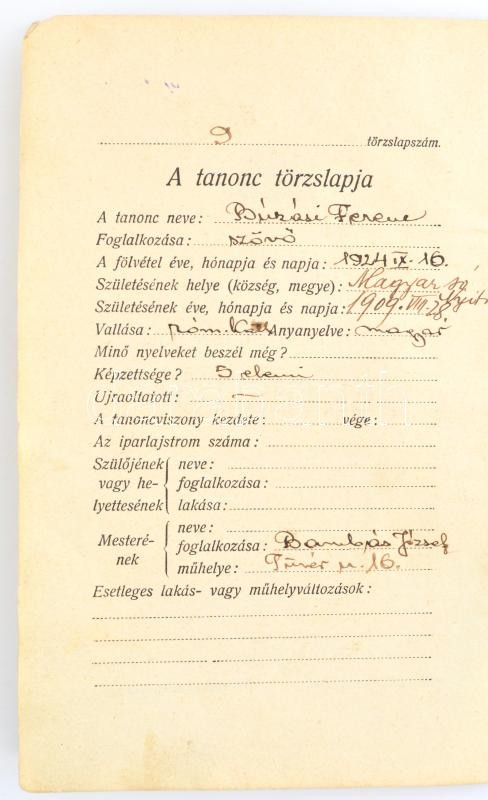 9 törzslapszám.
A tanonc törzslapja
A tanonc neve: Búzási Ferenc
Foglalkozása: szövő
A fölvétel éve, hónapja és napja: 1924 IX. 16.
Születésének helye (község, megye): Magyar
Születésének éve, hónapja és napja: 1909. VIII. 28.
Vallása: róm. kat Anyanyelve: magyar
Minő nyelveket beszél még?
Képzettsége? 5 elemi
Ujraoltatott: —
A tanoncviszony kezdete: vége:
Az iparlajstrom száma:
Szülőjének vagy helyettesének
neve:
foglalkozása:
lakása:
Mesterének
neve:
foglalkozása: Bambás József
műhelye: u. 16.
Esetleges lakás- vagy műhelyváltozások: